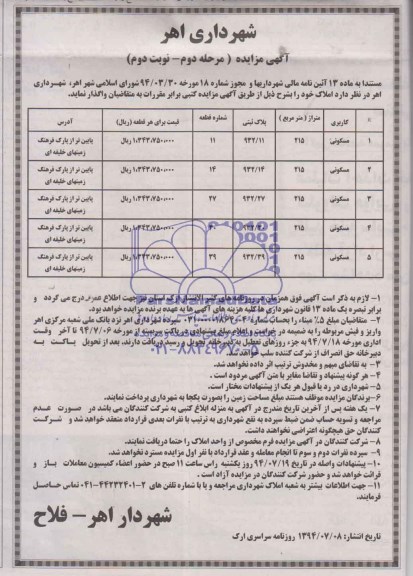 شهرداری اهر
آگهی مزایده ( مرحله دوم- نوبت دوم)
مستندا به ماده ۱۳ آئین نامه مالی شهرداریها و مجوز شماره ۱۸ مورخه ۹۴/۰۳/۳۰ شورای اسلامی شهر اهر، شهرداری
اهر در نظر دارد املاک خود را بشرح ذیل از طریق آگهی مزایده کتبی برابر مقررات به متقاضیان واگذار نماید.
کاربری متراژ ( متر مربع ) پلاک ثبتی شماره قطعه قیمت برای هر قطعه (ریال) آدرس
۱ مسکونی ۲۱۵ ۹۳۲/۱۱ ۱۱ ۱،۳۴۳،۷۵۰،۰۰۰ریال پایین تر از پارک فرهنگ
زمینهای خلیفه ای
۲ مسکونی ۲۱۵ ۹۳۲/۱۴ ۱۴ ۱،۳۴۳،۷۵۰،۰۰۰ریال پایین تر از پارک فرهنگ
زمینهای خلیفه ای
۳ مسکونی ۲۱۵ ۹۳۲/۲۷ ۲۷ ۱،۳۴۳،۷۵۰،۰۰۰ریال پایین تر از پارک فرهنگ
زمینهای خلیفه ای
۴ مسکونی ۲۱۵ ۱،۳۴۳،۷۵۰،۰۰۰ریال پایین تر از پارک فرهنگ
زمینهای خلیفه ای
۵ مسکونی ۲۱۵ ۹۳۲/۳۹ ۳۹ ۱،۳۴۳،۷۵۰،۰۰۰ریال پایین تر از پارک فرهنگ
زمینهای خلیفه ای
۱- لازم به ذکر است آگهی فوق همزمان در روزنامه های کثیر الانتشار ارک استان نیز جهت اطلاع عموم درج می گردد و
برابر تبصره یک ماده ۱۳ قانون شهرداری ها کلیه هزینه های آگهی ها به عهده برنده مزایده خواهد بود.
۲- متقاضیان مبلغ ۵٪ مبناء را بحساب شماره سپرده شهرداری اهر نزد بانک ملی شعبه مرکزی اهر
واریز و فیش مربوطه را به ضمیمه درخواست و اعلام مبلغ پیشنهادی در پاکت سربسته از مورخه ۹۴/۷/۰۶ تا آخر وقت
اداری مورخه ۹۴/۷/۱۸ به جزء روزهای تعطیل به دبیرخانه تحویل و رسید دریافت دارند. بعد از تحویل پاکت به
دبیرخانه حق انصراف از شرکت کننده سلب خواهد شد.
۳- به تقاضای مبهم و مخدوش ترتیب اثر داده نخواهد شد.
۴- هر گونه پیشنهاد و تقاضا مغایر با متن آگهی مردود است .
۵- شهرداری در رد یا قبول هر یک از پیشنهادات مختار است.
۶-برندگان مزایده موظف هستند مبلغ مساحت زمین را بصورت یکجا به شهرداری پرداخت نمایند.
۷- یک هفته پس از آخرین تاریخ مندرج در آگهی به منزله ابلاغ کتبی به شرکت کنندگان می باشد در صورت عدم
مراجعه و تسویه حساب ضمن ضبط سپرده به نفع شهرداری به ترتیب با نفرات بعدی قرارداد منعقد خواهد شد و شرکت
کنندگان حق هیچگونه اعتراضی نخواهند داشت.
۸- شرکت کنندگان در آگهی مزایده فرم مخصوص از واحد املاک را حتما دریافت نمایند.
۹- سپرده نفرات دوم و سوم تا انجام معامله و عقد قرارداد با نفر اول مزایده مسترد نخواهد شد.
۱۰- پیشنهادات واصله در تاریخ ۹۴/۰۷/۱۹ روز یکشنبه راس ساعت ۱۱ صبح در حضور اعضاء کمیسیون معاملات باز و
قرائت خواهد شد و حضور شرکت کنندگان در مزایده آزاد است .
۱۱- جهت اطلاعات بیشتر به شعبه املاک شهرداری مراجعه و یا با شماره تلفن های ۲-۰۴۱-۴۴۲۳۲۴۰۱ تماس حاصل
فرمایند.
شهردار اهر - فلاح
تاریخ انتشار: ۱۳۹۴/۰۷/۰۸ روزنامه سراسری ارک